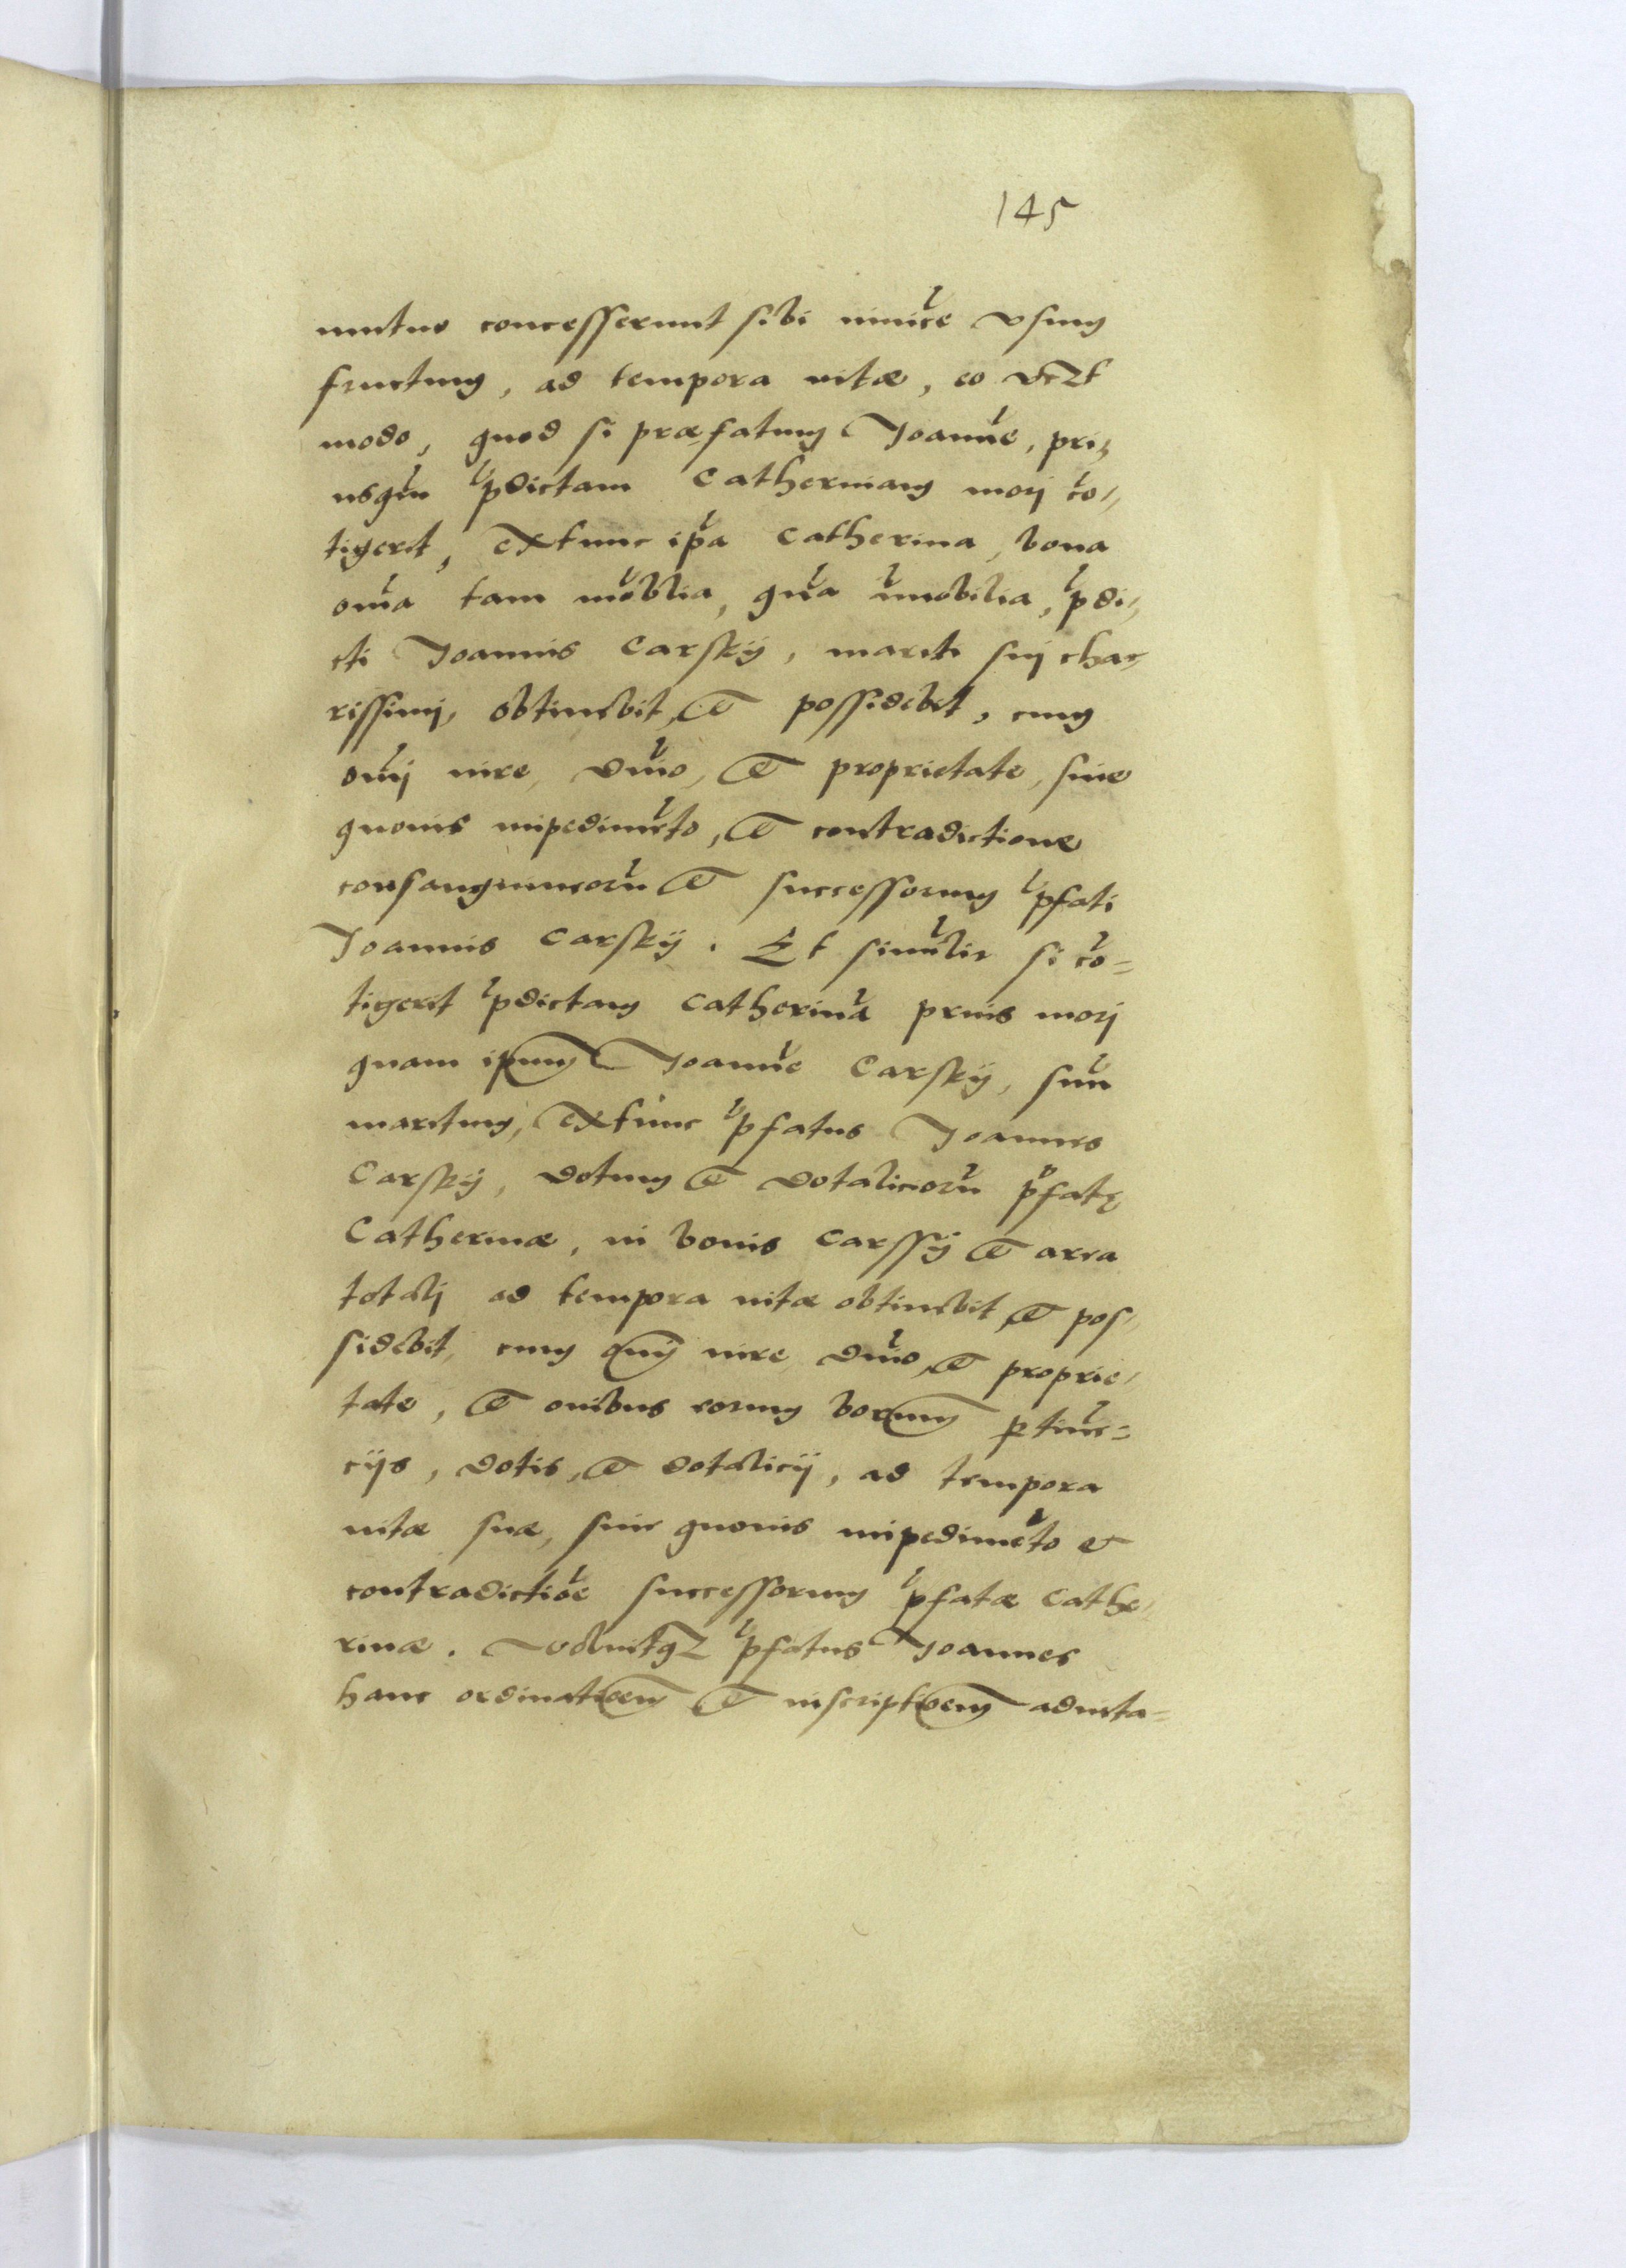 145
mutuo concesserunt sibi inuicē vsum
fructum, ad tempora vitæ, eo vczt
modo, quod si præfatum Joannē, pri,
usqūa p̄dictam Catherinam morj cō,,
tigerit, extunc ip̄a Catherina, bona
om̄a tam mōblia, qūa īmobilia, p̄di,,
cti Joannis Carskÿ, mariti suj cha,
rissimj, obtinebit, et possidebit, cum
om̄j iure, dnīo, et proprietate, siue
quouis impedimēto, et contradictione
consanguineorū et successorum p̄fati
Joannis Carskÿ. Et simīlir si cō=
tigerit p̄dictam Catherinā prius morj
quam ipsum Joannē Carskÿ, suū
maritum, extunc p̄fatus Joannes
Carskÿ, dotum et dotaliciorū p̄fatę
Catherinæ, in bonis Carssÿ et area
totalj ad tempora vitæ obtinebit, et pos,,
sidebit, cum om̄j iure dnīo, et proprie,,
tate, et onibus eorum bonorum ptinē=
cijs, dotis, et dotalicij, ad tempora
vitæ suæ, sine quouis impedimēto et
contradictiōe successorum p̄fatæ Cathe,,
rinæ. Voluitqz p̄fatus Joannes
hanc ordinatioem et inscriptioem aduita=